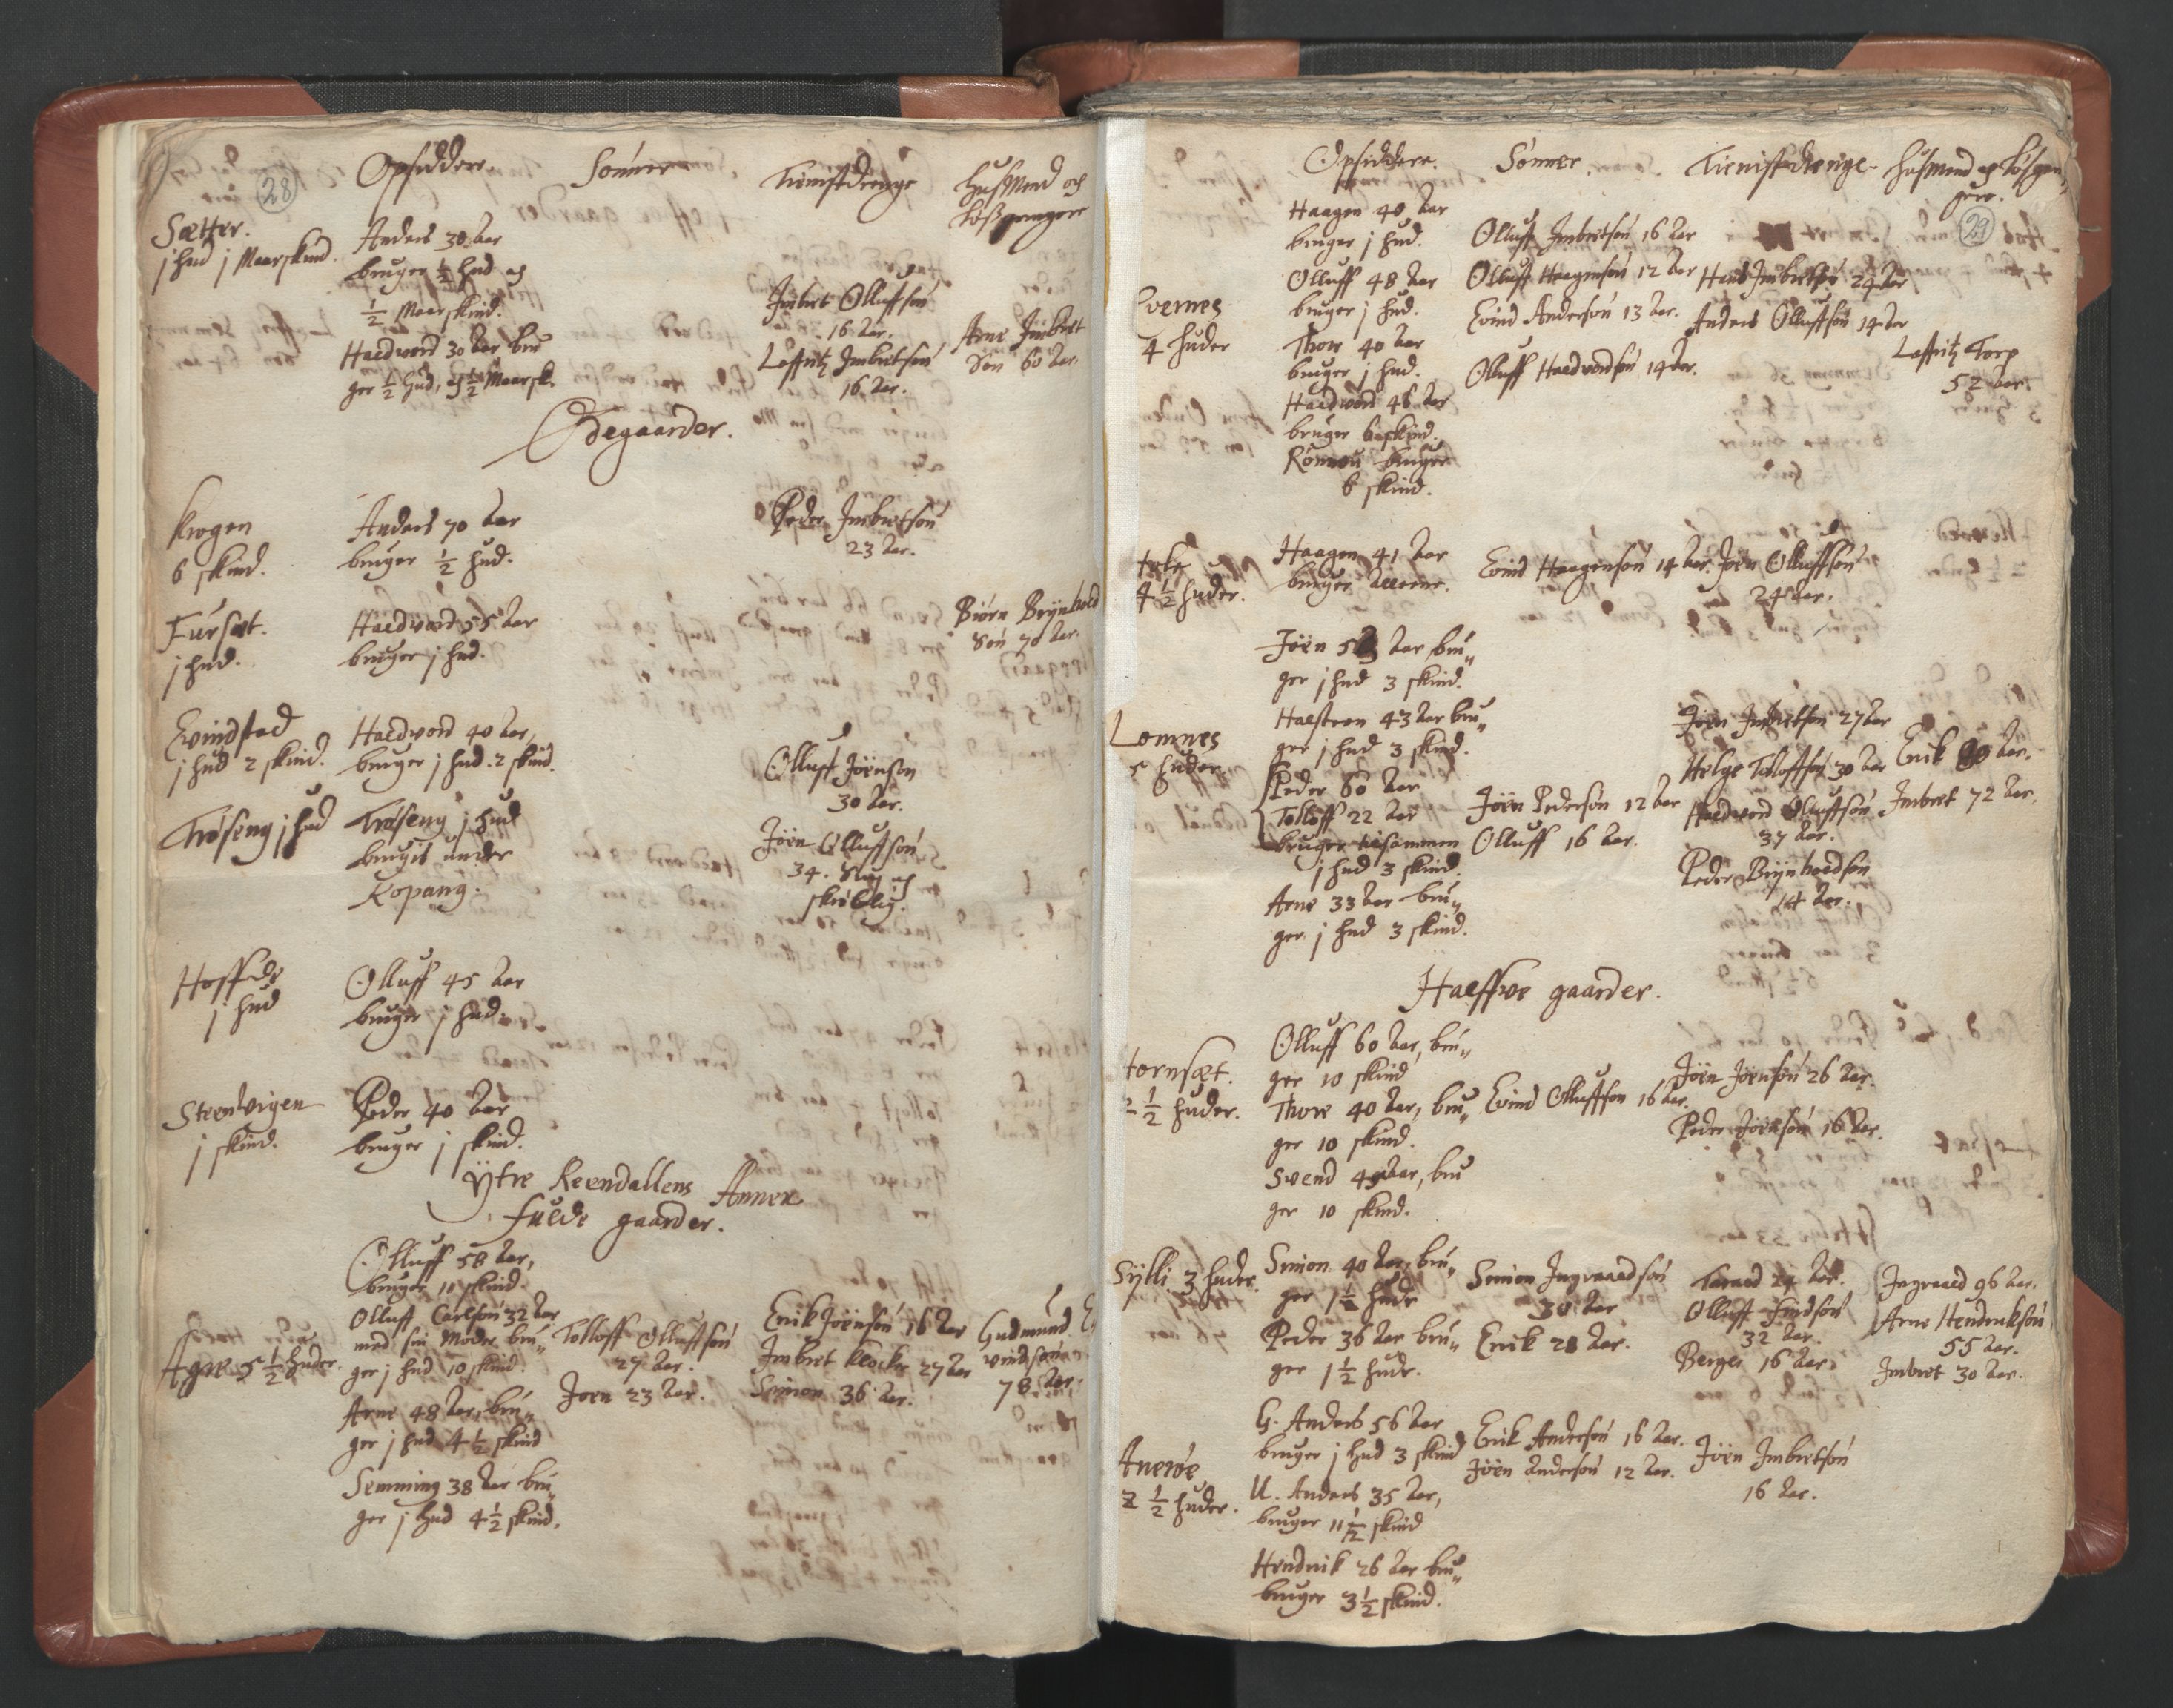 28
Opsiddere.
Sønner
Tienistdrenge
Husmend och
Løsgengere
Sætter.
j hud j Maarskind.
Anders 30 Aar
bruger ½ hud og
½ Maarskind.
Haldword 30 Aar bru
ger ½ hud, og ½ Maarsk.
Imbret Olluffsøn
16 Aar.
Laffritz Imbretsøn
16 Aar.
Arne Imbret
Søn 60 Aar.
Ødegaarder.
Krogen
6 skind.
Anders 70 Aar
bruger ½ hud.
Peder Imbretsøn
23 Aar.
Furset.
j hud.
Haldword 55 Aar
bruger j hud.
Biørn Brynhold
Søn 70 Aar.
Evindstad
j hud 2 skind.
Haldword 40 Aar,
bruger j hud. 2 skind.
Olluff Jøenson
30 Aar.
Trøseng j hud
Trøseng j hud
brugis under
Kopang.
Jøen Olluffsøn
34. Siug og
skrøblig.
Hoffde
j hud
Olluff 45 Aar
bruger j hud.
Steenvigen
j skind.
Peder 40 Aar
bruger j skind.
Ytre Reendallens Annex
Fulde gaarder.
Agre 5½ huder.
Olluff 58 Aar,
bruger 10 skind.
Olluff Carlsøn 32 Aar
med sin Moder bru„
ger j hud 10 skind.
Arne 48 Aar, bru„
ger j hud 4½ skind
Semming 38 Aar bru„
ger j hud 4½ skind.
Tolloff Olluffsøn
27 Aar.
Joen 23 Aar.
Erik Jøensøn 16 Aar
Imbret Klocker 27 Aar
Simon 36 Aar.
Gudmund E
vindsøn
78 Aar.
Opsiddere.
Sønner.
Tienistedrenge
Husmend og Løsgen„
gere.
29
Evernes
4 huder
Haagen 40 Aar
bruger j hud.
Olluff 48 Aar
bruger j hud.
Thore 40 Aar
bruger j hud.
Haldword 46 Aar
bruger 6 skind.
Rønnou bruger
6 skind.
Olluff Imbretsøn 16 Aar
Olluff Haagensøn 12 Aar
Evind Andersøn 13 Aar.
Olluff Haldvordsøn 14 Aar.
Hans Imbretsøn 24 Aar
Anders Olluffsøn 14 Aar
Laffritz Torp
52 Aar.
4½ huder.
Haagen 41 Aar
bruger alleene.
Evind Haagensøn 14 Aar.
Jøen Olluffsøn
24 Aar.
Lomnes
5 huder
Jøen Aar bru„
ger j hud 3 skind.
Halsteen 43 Aar bru„
ger j hud 3 skind.
Peder 60 Aar
Tolloff 22 Aar
bruger tilsammen
j hud 3 skind.
Arne 33 Aar bru„
ger j hud 3 skind.
Jøen Pedersøn 12 Aar
Olluff 16 Aar.
Jøen Imbretsøn 27 Aar
Helge Tolloffsøn 30 Aar
Haldword Olluffsøn
37 Aar.
Peder Brynholdsøn
14 Aar.
Erik Aar.
Imbret 72 Aar.
Halffwe gaarder.
tornsæt.
2½ huder.
Olluff 60 Aar, bru„
ger 10 skind
Thore 40 Aar, bru„
ger 10 skind.
Svend 49 Aar, bru
ger 10 skind.
Evind Olluffson 16 Aar.
Jøen Jøensøn 26 Aar.
Peder Jøensøn 16 Aar.
Sylli 3 huder.
Simon 40 Aar, bru„
ger 1½ hude
Peder 36 Aar bru„
ger 1½ hude.
Simon Ingvaldsøn
30 Aar
Erik 28 Aar.
Tarald 24 Aar.
Olluff Findsøn
32 Aar.
Berger 16 Aar.
Ingvald 96 Aar.
Arne Hendriksøn
55 Aar.
Imbret 30 Aar.
2½ huder.
G. Anders 56 Aar
bruger j hud 3 skind
U. Anders 35 Aar,
bruger 11½ skind
Hendrik 26 Aar bru„
bruger 3½ skind.
Erik Andersøn 16 Aar.
Jøen Andersøn 12 Aar.
Jøen Imbretsøn
16 Aar.